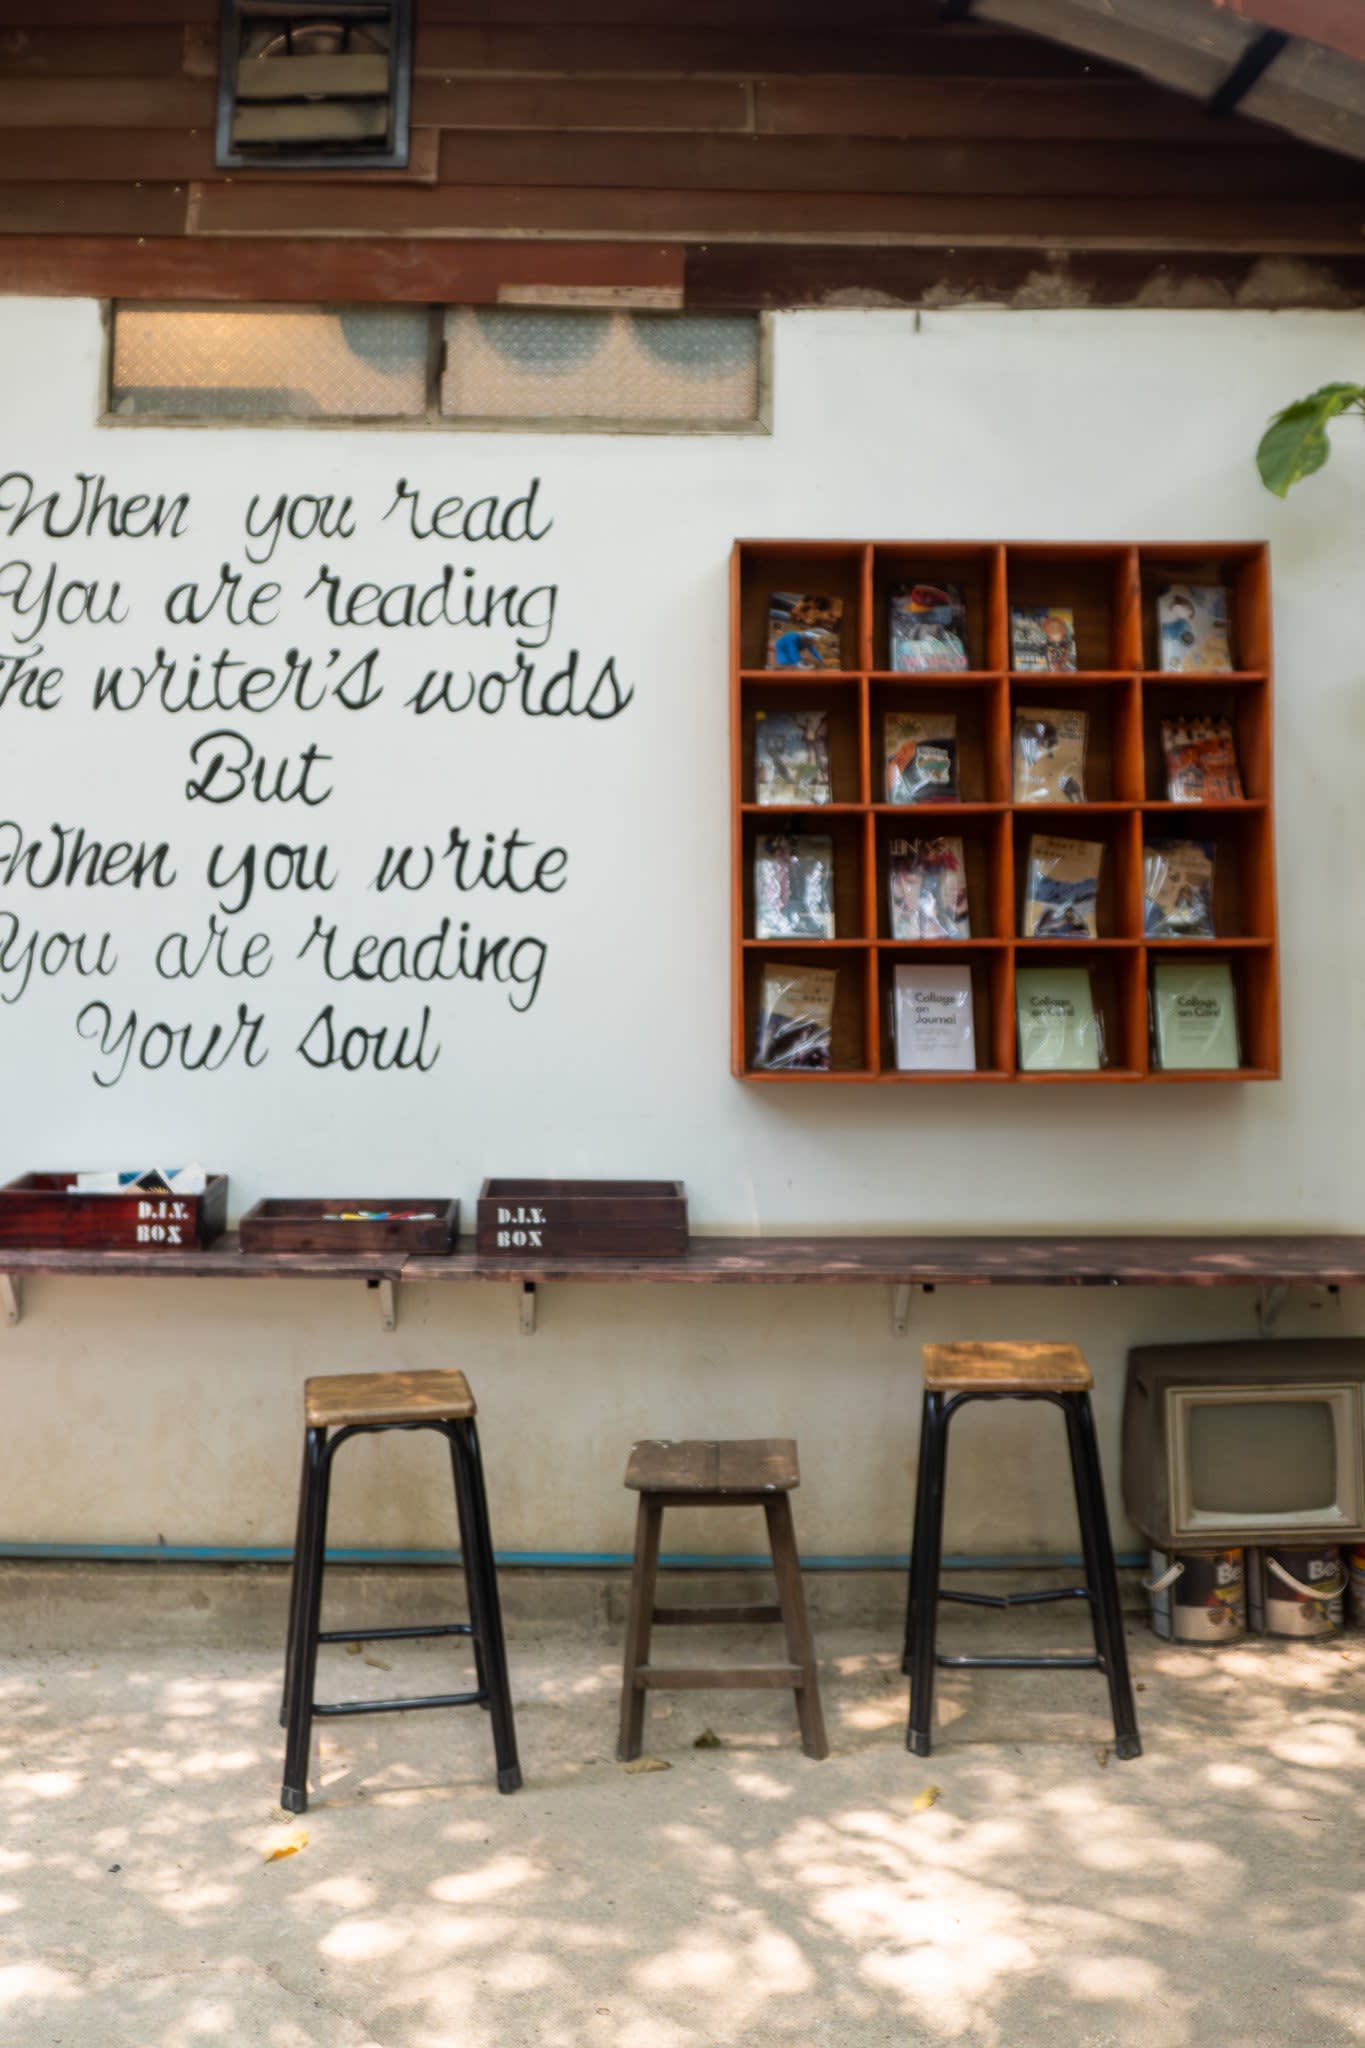 When you read
You are reading
The writer's words
But
When you write
You are reading
Your soul
Collage
on
Journal
Collage
on Card
Collage
on Card
D.I.Y.
BOX
D.I.Y.
BOX
Be
Be